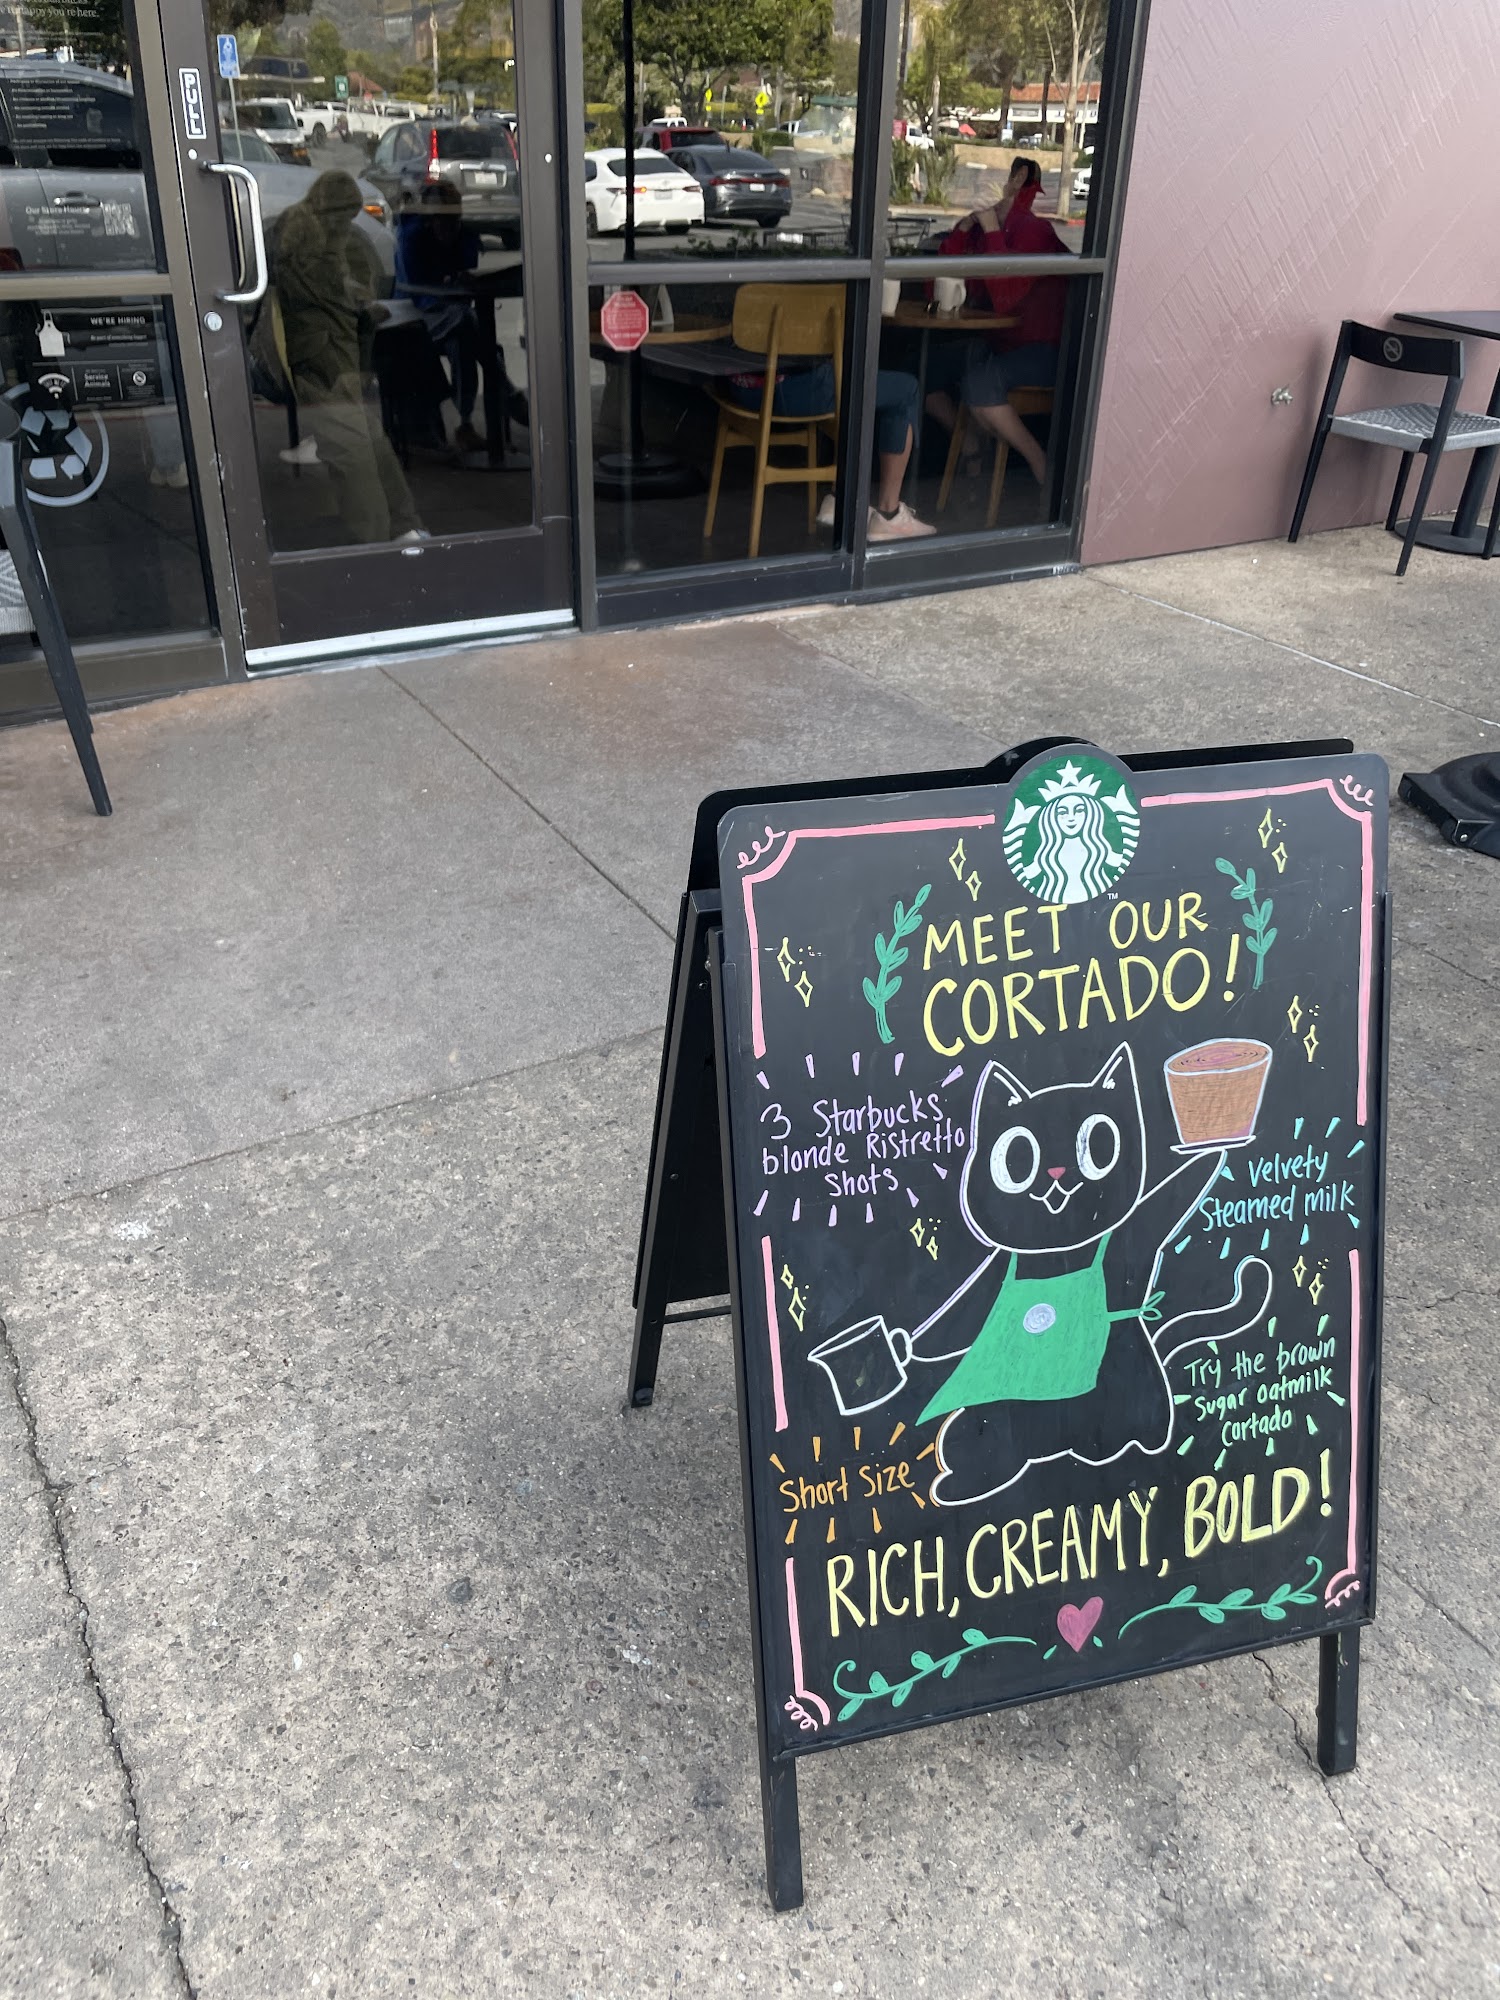 're happy you're here.
PULL
Our Store Hours
WE'RE HIRING
Service
Animals
MEET OUR
CORTADO!
3 Starbucks
blonde Ristretto
shots
Velvety
Steamed milk
Try the brown
sugar oatmilk
cortado
Short Size
RICH, CREAMY, BOLD!
TM